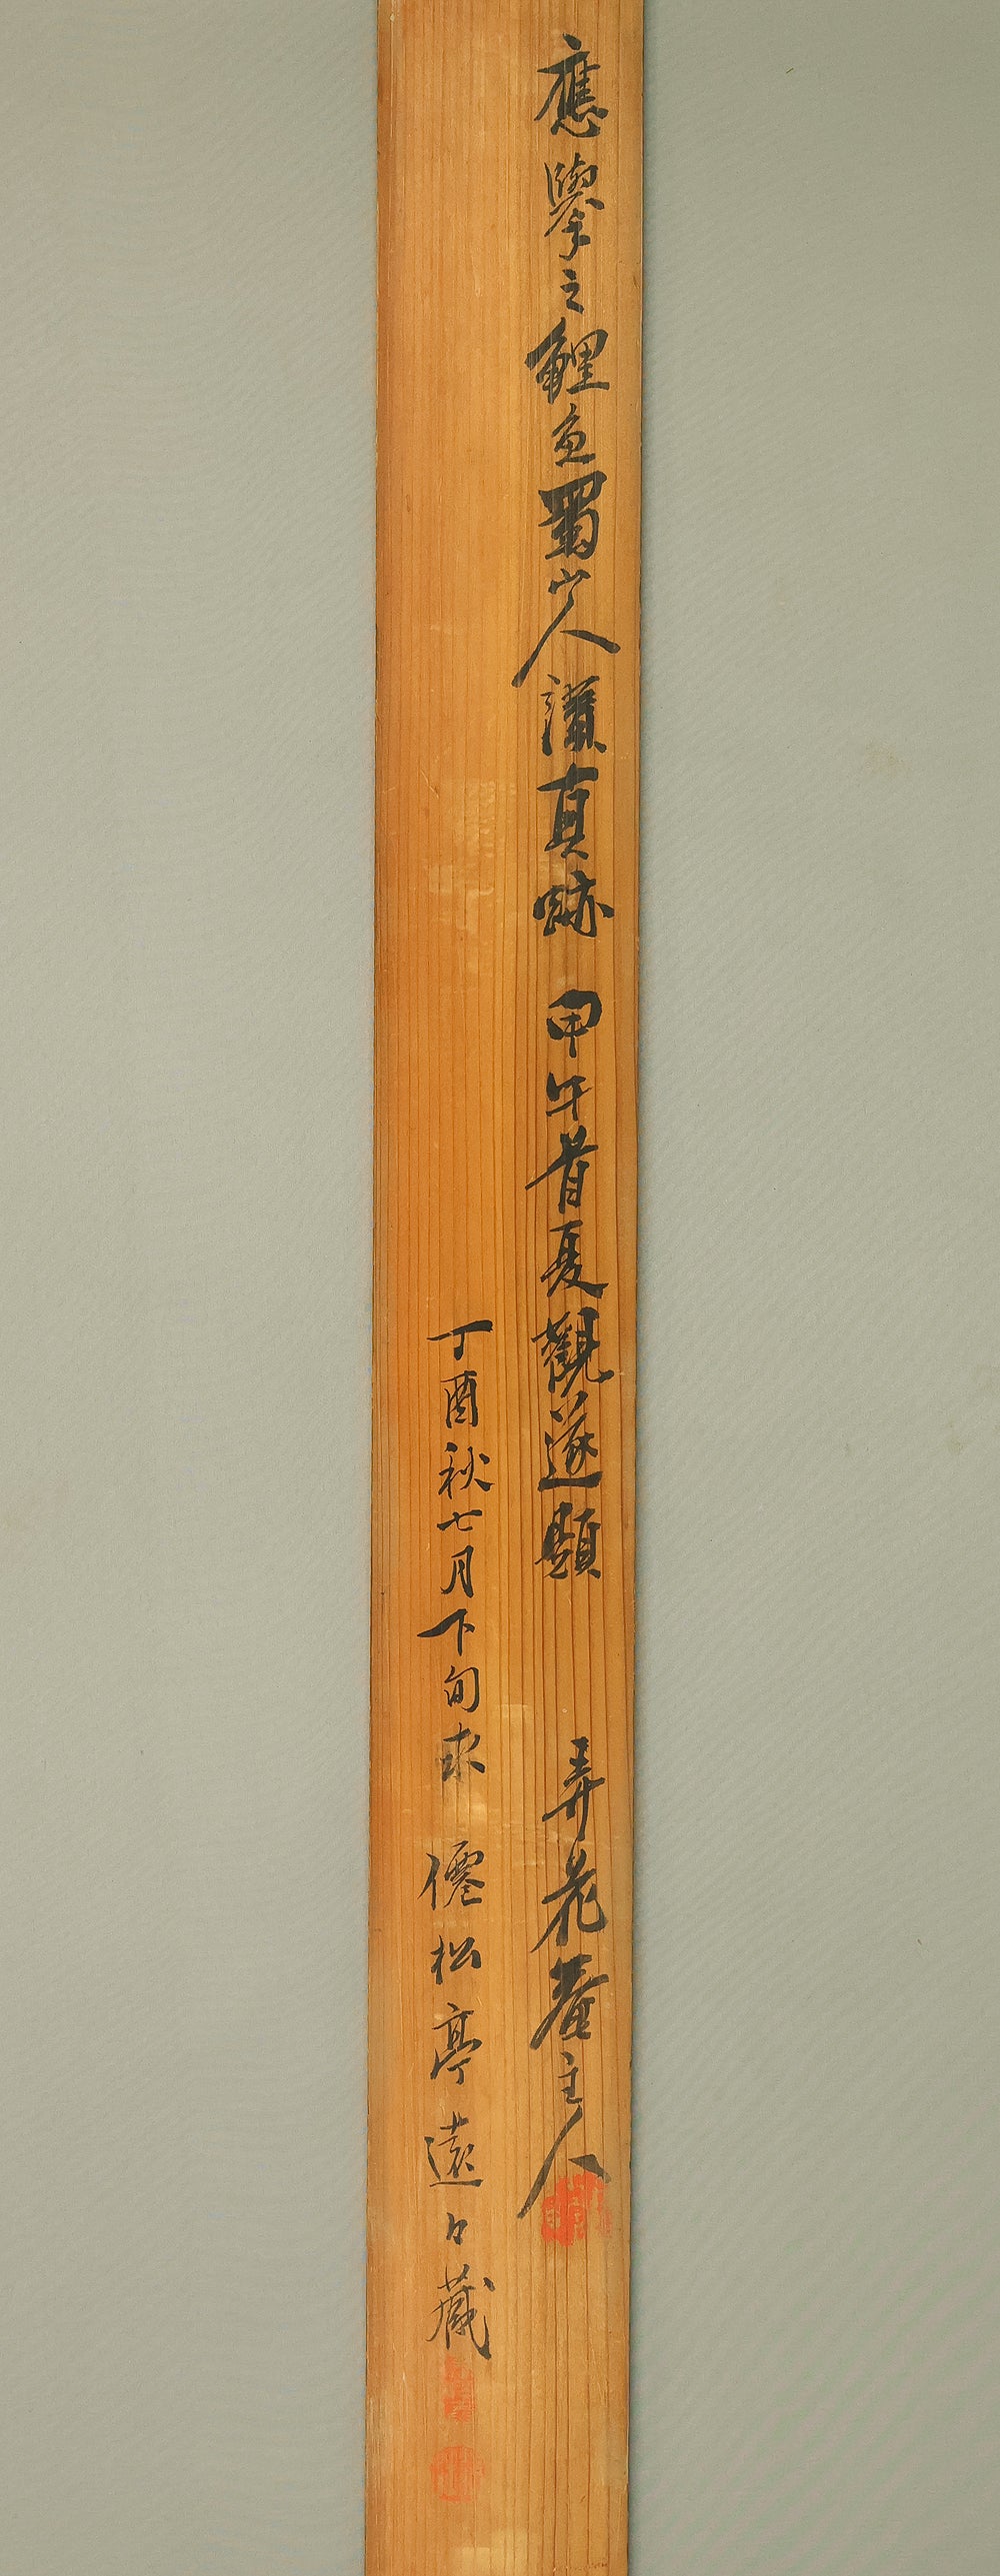 應擧之鯉魚蜀山人讃真跡 甲午首夏觀遂題 弄花菴主人
丁酉秋七月下旬求 僊松亭遠々藏